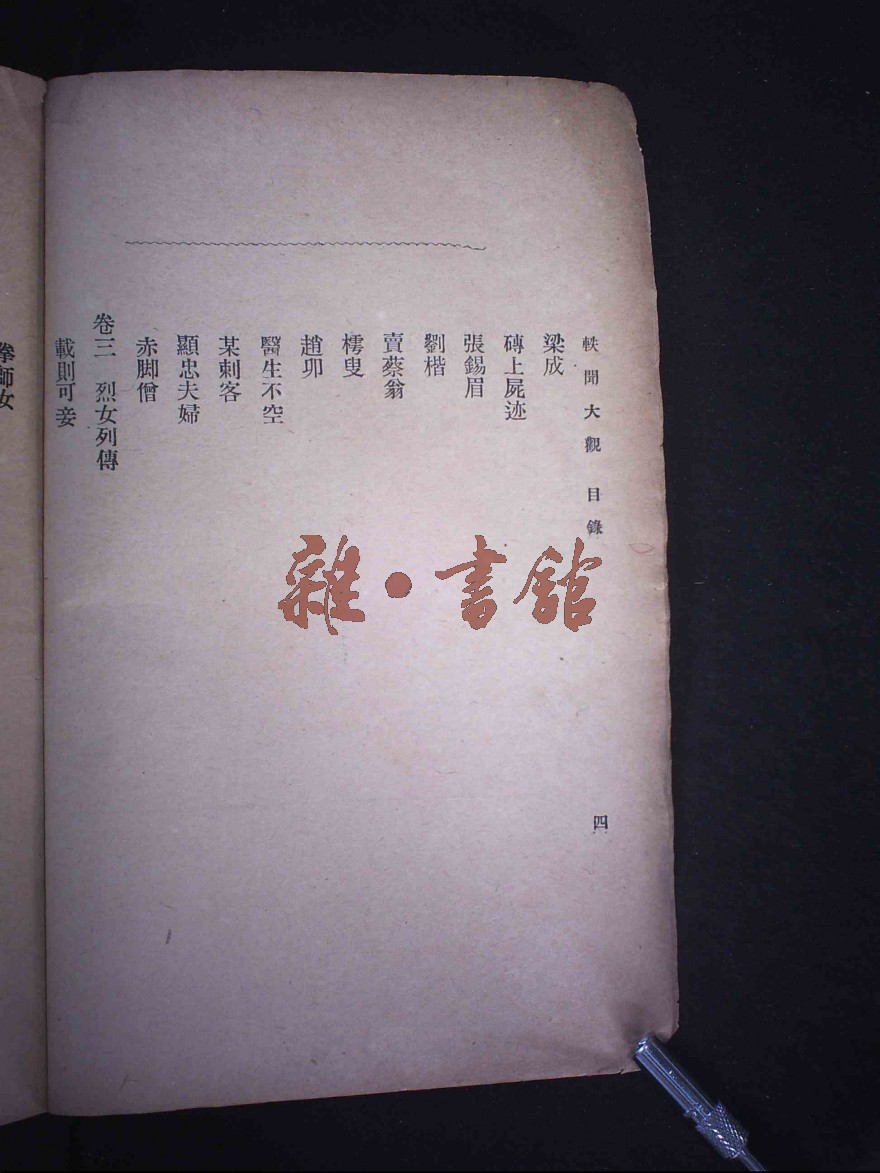 軼聞大觀 目錄
四
梁成
磚上屍迹
張錫眉
劉楷
賣蔡翁
樗叟
趙丣
醫生不空
某刺客
顯忠夫婦
赤脚僧
卷三 烈女列傳
載則可妾
拳師女
雜·書館